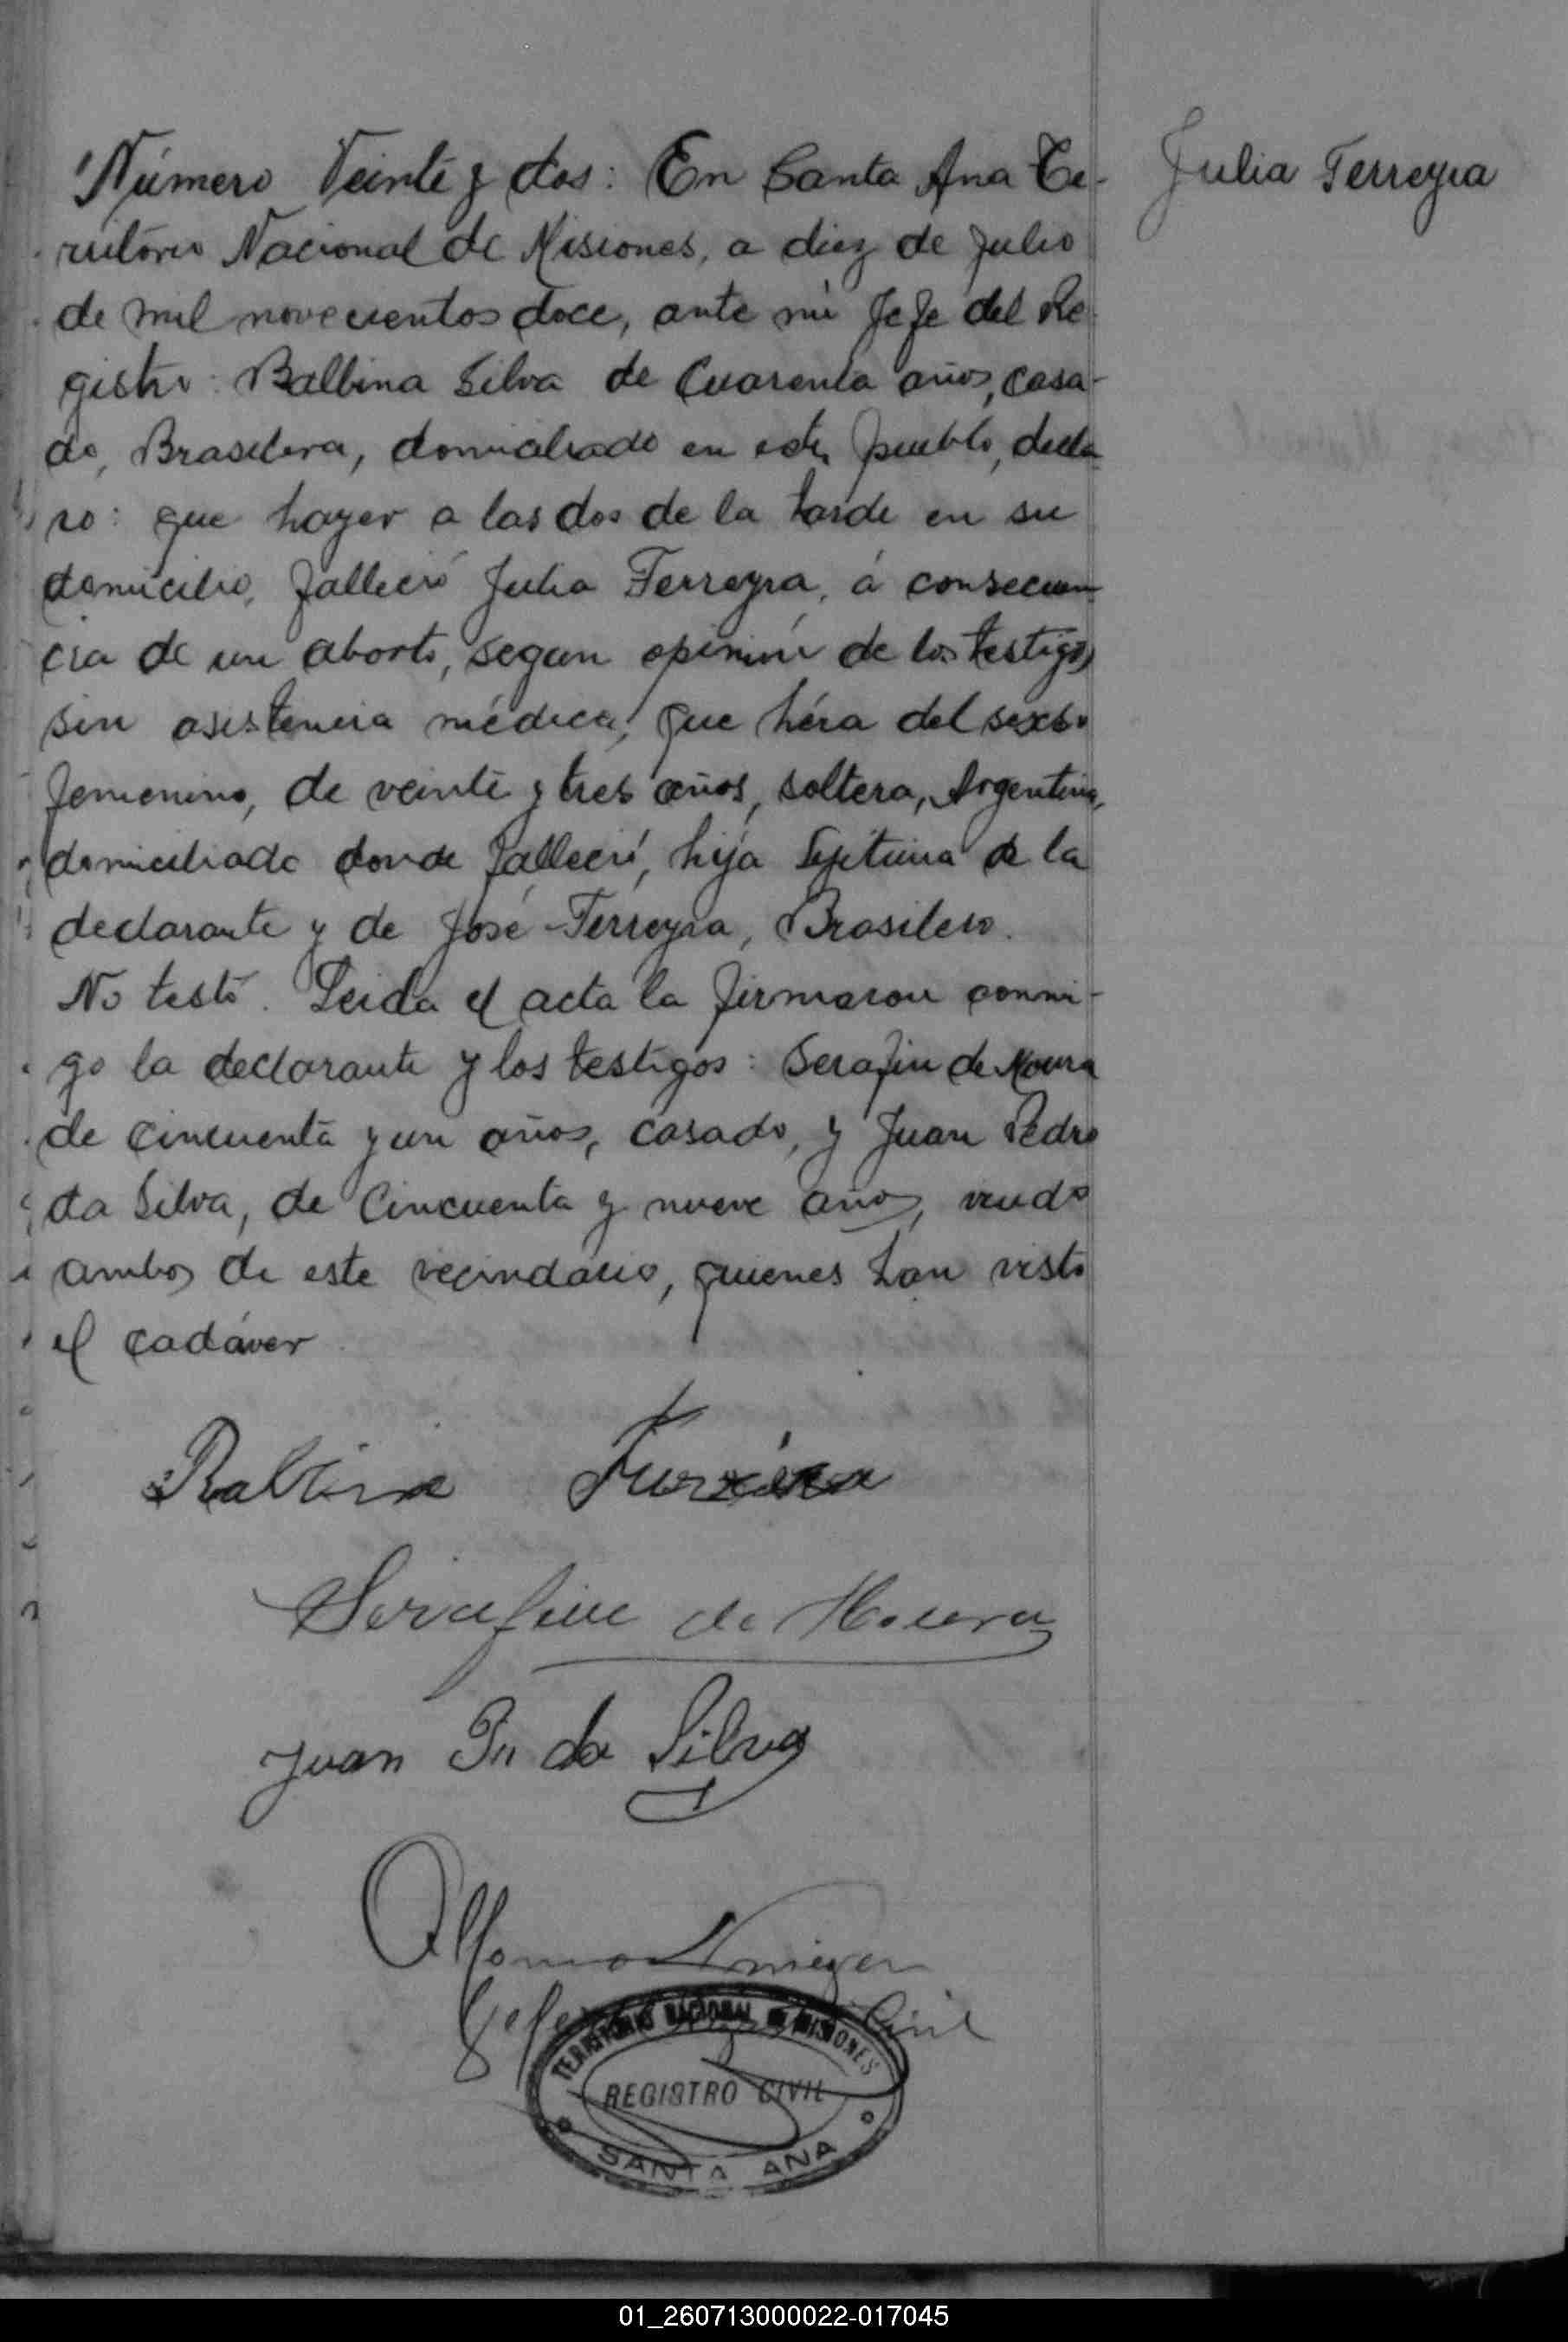 Número Veinte y dos: En Santa Ana Te-
rritorio Nacional de Misiones, a diez de Julio
de mil novecientos doce, ante mi Jefe del Re
gistro: Balbina Silva de Cuarenta años, casa-
da, Brasilera, domiciliada en este pueblo, decla
ro: que hayer a las dos de la tarde en su
domicilio, falleció Julia Ferreyra, á consecuen
cia de un aborto, segun opinion de los testigos
sin asistencia médica, que héra del sexo
femenino, de veinte y tres años, soltera, Argentina,
domiciliada donde falleció, hija lejitima de la
declarante y de José Ferreyra, Brasilero.
No testó. Leida el acta la firmaron conmi-
go la declarante y los testigos: Serafin de Moura
de cincuenta y un años, casado, y Juan Pedro
da Silva, de Cincuenta y nueve años, viudo
ambos de este vecindario, quienes han visto
el cadáver
Julia Ferreyra
Balbina
Serafin de Moura
Juan da Silva
Civil
TERRITORIO NACIONAL DE MISIONES
REGISTRO CIVIL
SANTA ANA
01_260713000022-017045